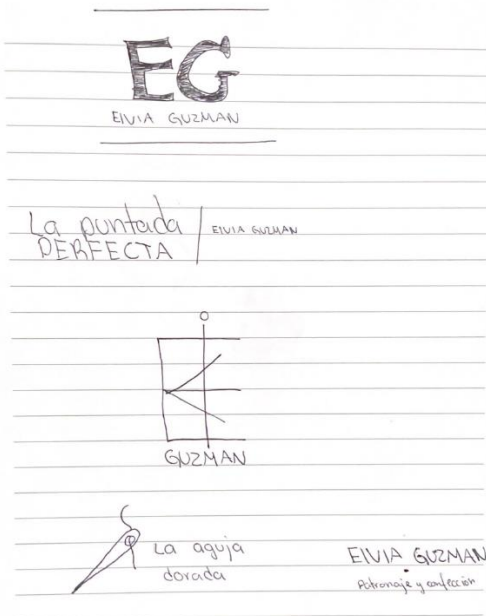 EG
ElVIA GUZMAN
La puntada
PERFECTA
ElVIA GUZMAN
GUZMAN
La aguja
dorada
ElVIA GUZMAN
Patronaje y confección